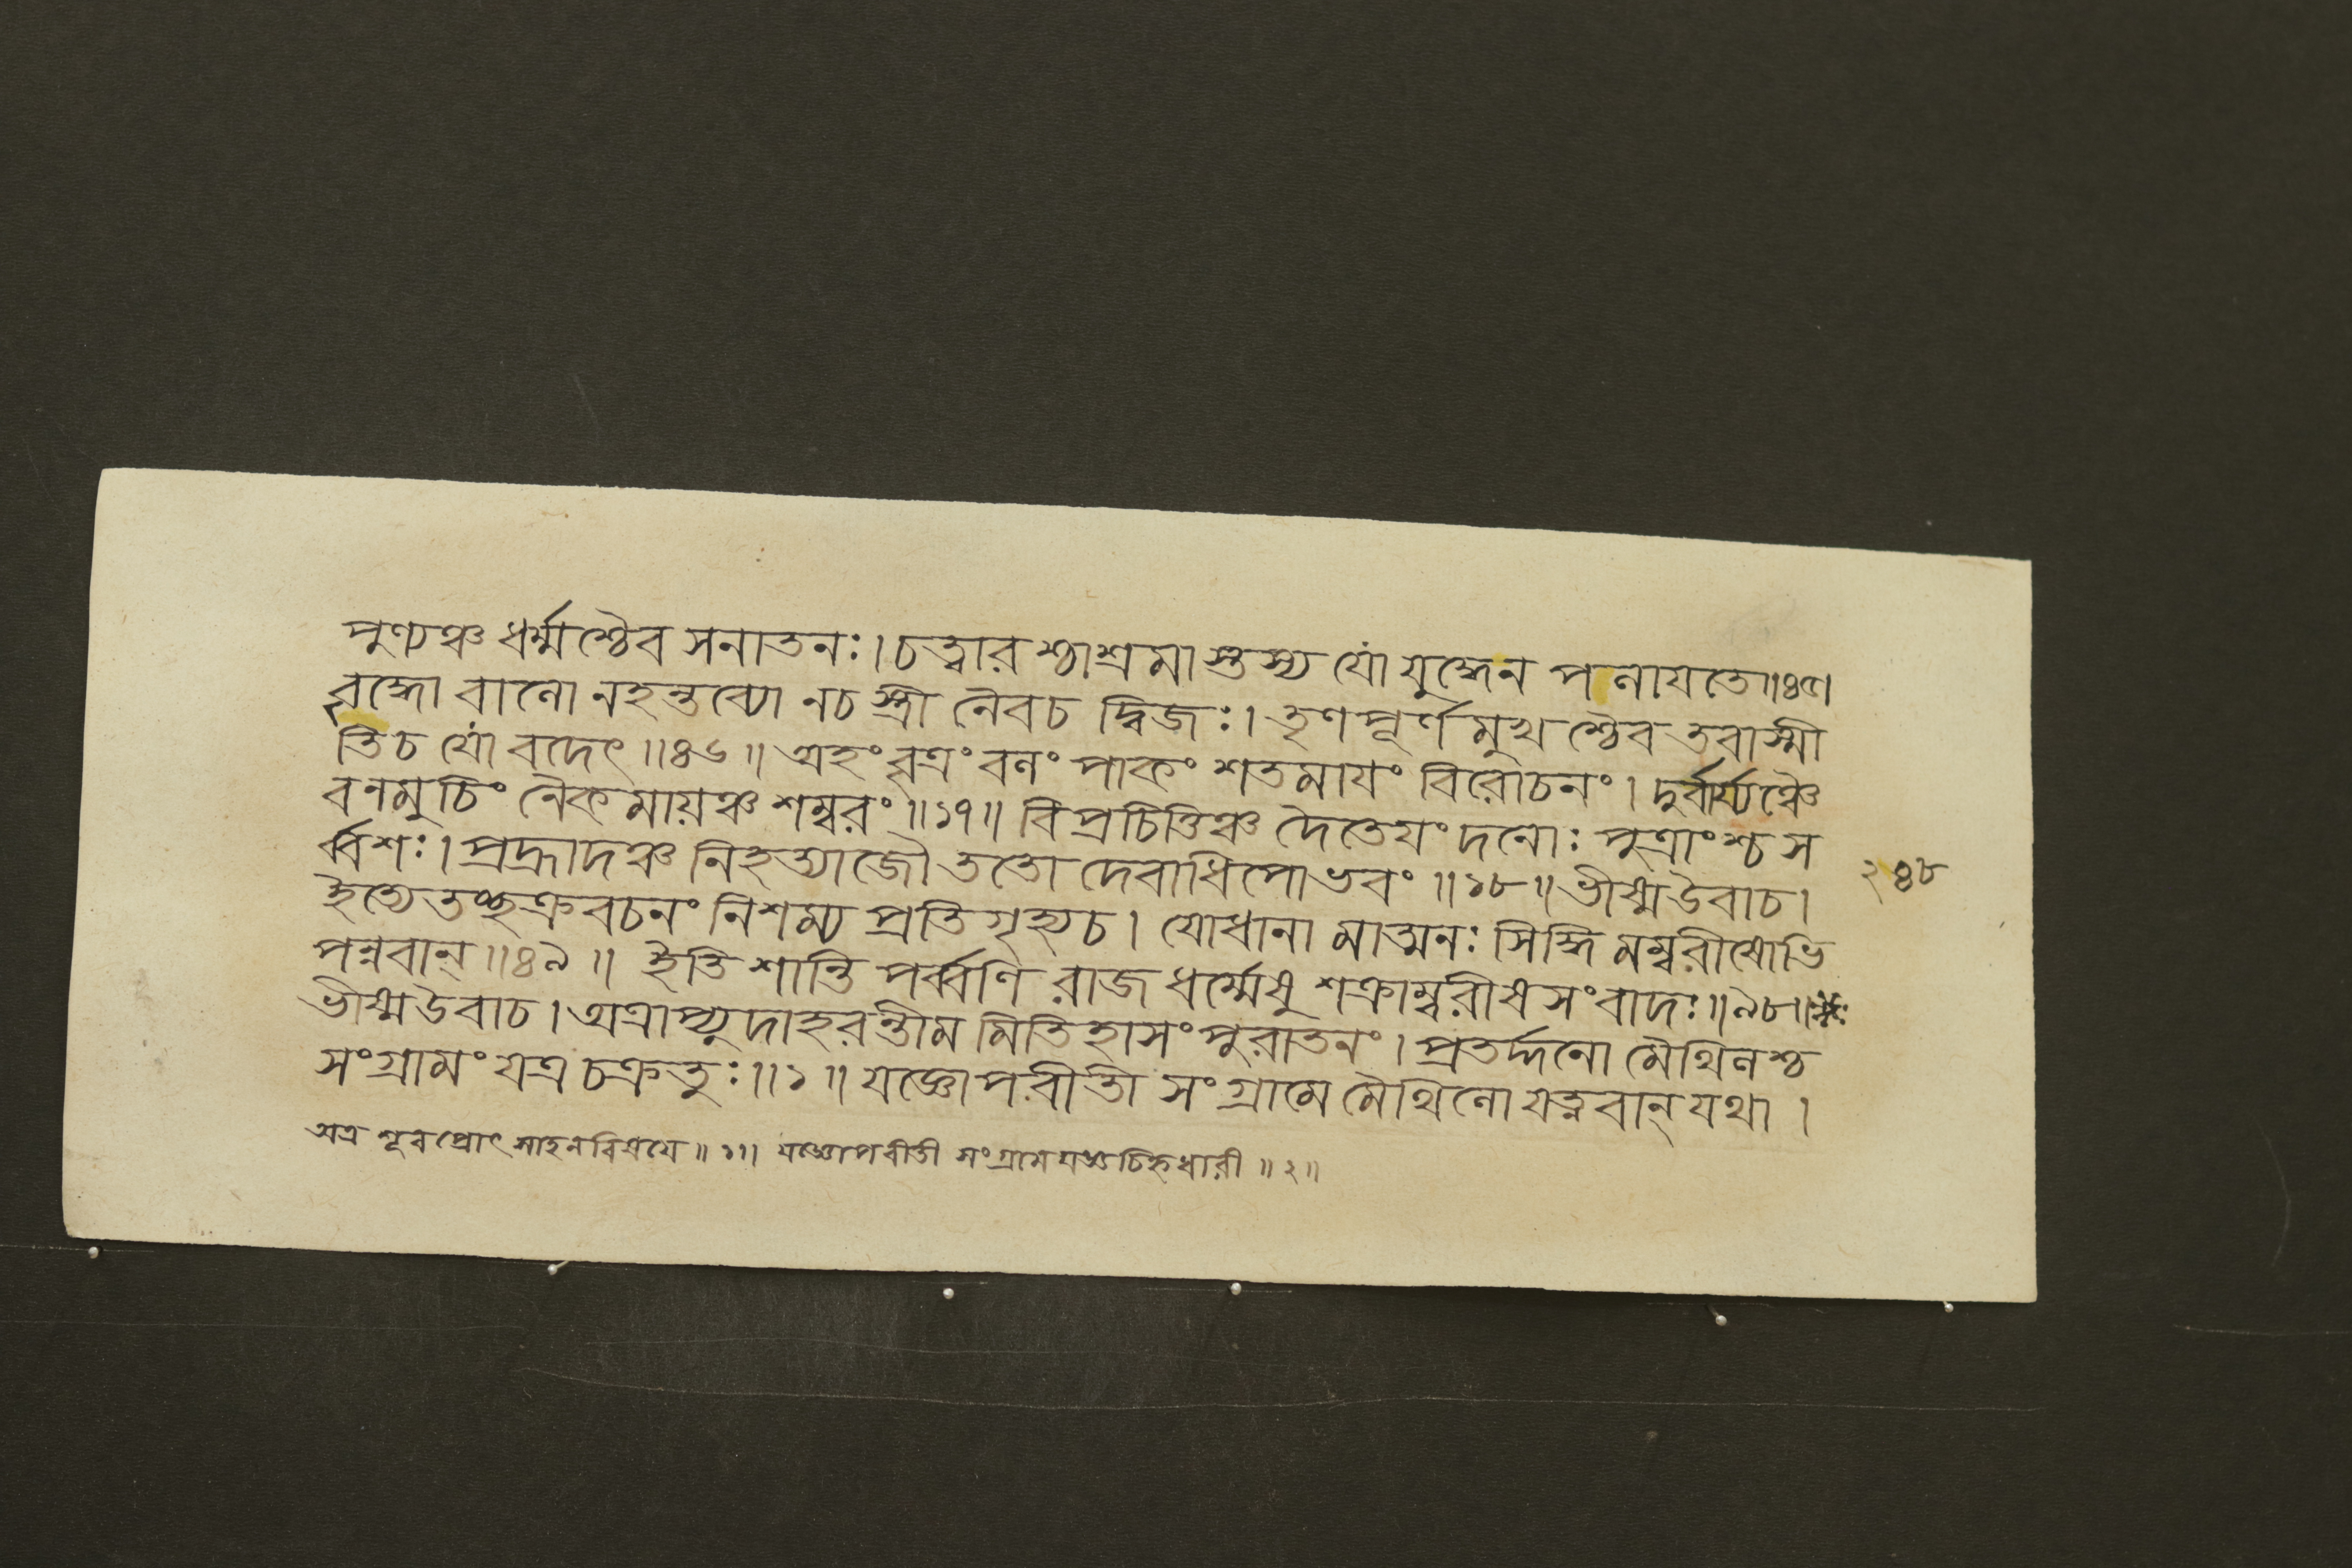 পুণ্যঞ্চ ধর্ম্মশ্চৈব সনাতনঃ। চত্বারশ্চাশ্রমাস্তস্য যো যুদ্ধেন পলাযতে॥৪৫।
বৃদ্ধো বালো নহন্তব্যো নচ স্ত্রী নৈবচ দ্বিজঃ। তৃণপূর্ণমুখশ্চৈব তবাস্মী
তিচ যো বদেৎ॥৪৬॥ অহং বৃত্রং বলং পাকং শতমাযং বিরোচনং। দুর্ব্বার্য্যঞ্চৈ
বনমুচিং নৈকমায়ঞ্চ শম্বরং॥১৭॥ বিপ্রচিত্তিঞ্চ দৈতেযং দনোঃ পুত্রাংশ্চ স
র্ব্বশঃ। প্রহ্লাদঞ্চ নিহত্যাজৌ ততো দেবাধিপোভবং॥১৮॥ ভীষ্মউবাচ।
ইত্যেতচ্ছক্রবচনং নিশম্য প্রতিগৃহ্যচ। যোধানা মাত্মনঃ সিদ্ধি মম্বরীষোভি
পন্নবান্॥৪৯॥ ইতি শান্তি পর্ব্বণি রাজধর্ম্মেষু শক্রাম্বরীষসংবাদঃ॥৯৮॥
ভীষ্মউবাচ। অত্রাপ্যুদাহরন্তীম মিতিহাসং পুরাতনং। প্রতর্দ্দনো মৈথিলশ্চ
সংগ্রামং যত্র চক্রতুঃ॥১॥ যজ্ঞোপবীতী সংগ্রামে মৈথিলো যত্নবান্ যথা।
অত্র শূরপ্রোৎসাহনবিষযে॥১।। যজ্ঞোপবীতী সংগ্রামযজ্ঞচিহ্নধারী॥২॥
২৪৮